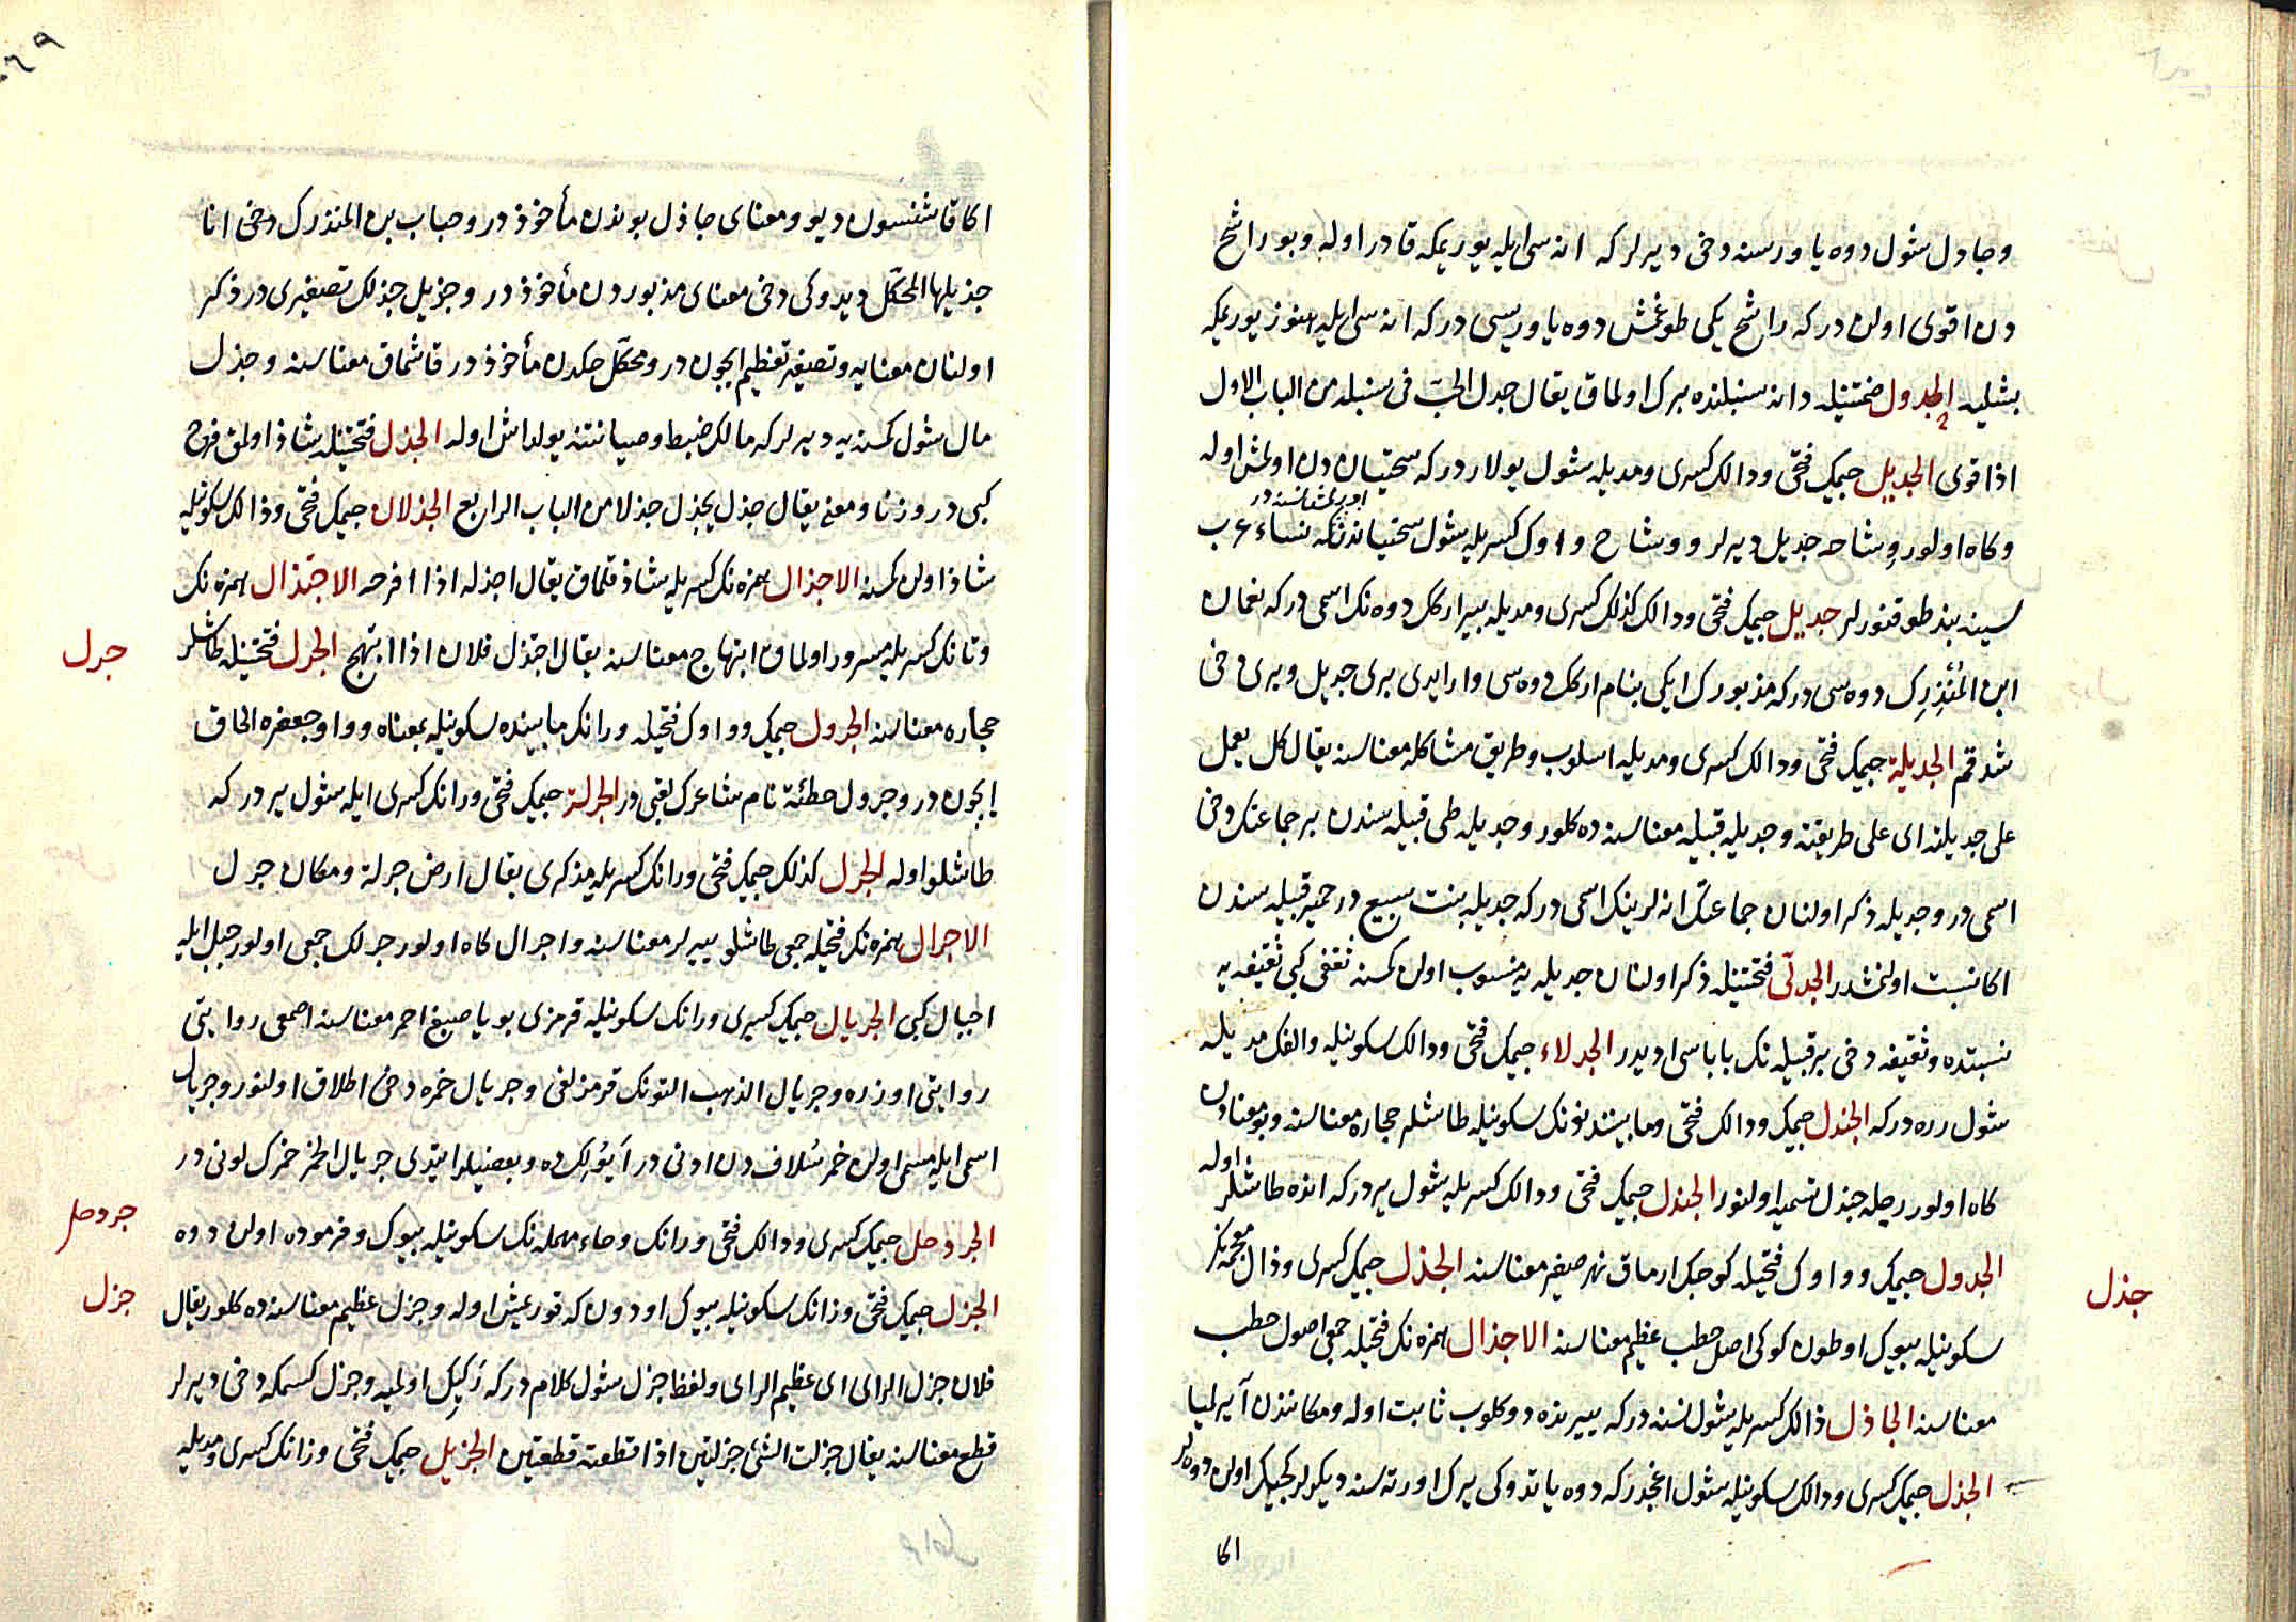 وجادل شول دوه ياورسنه دخى ديرلر كه اناسى ايله يوريمكه قادر اوله وبو راشح
دن اقوى اولن در كه راشح يكى طوغمش دوه ياوريسى در كه اناسى ايله هنوز يوريمكه
بشليه الجدول ضمتينله دانه سنبلنده برك اولماق يقال جدل الحبّ فى سنبله من الباب الاول
اذا قوى الجديل جيمك فتحى ودالك كسرى ومديله شول يولاردر كه سختيان دن اولمش اوله
وكاه اولور وشاحه جديل ديرلر ووشاح واوك كسريله شول سختياندنكه نساء عرب
سينه بند طوقنورلر جديل جيمك فتحى ودالك كذلك كسرى ومديله بر اركك دوه نك اسمى در كه نعمان
ابن المُنْذِرِك دوه سى در كه مذبورك ايكى بنام اركك دوه سى وار ايدى برى جديل وبرى دخى
شدقم الجديلة جيمك فتحى ودالك كسرى ومديله اسلوب وطريق مشاكله معناسنه يقال كل يعمل
على جديلته اى على طريقته وجديله قبيله معناسنه ده كلور وجديله طى قبيله سندن بر جماعتك دخى
اسمى در وجديله ذكر اولنان جماعتك انه لرينك اسمى در كه جديله بنت سبيع در حمير قبيله سندن
اكا نسبت اولنمشدر الجدلىّ فتحتينله ذكر اولنان جديله يه منسوب اولن كمسنه ثقفى كبى ثقيفه يه
نسبتده وثقيفه دخى بر قبيله نك باباسى ايديدر الجدلاء جيمك فتحى ودالك سكونيله والفك مديله
شول زره در كه الجندل جيمك ودالك فتحى ومابيننده نونك سكونيله طاشلر حجاره معناسنه وبو معنادن
كاه اولور رجله جندل تسميه اولنور الجندل جيمك فتحى ودالك كسريله شول يردر كه انده طاشلر اوله
الجدول جيمك وواوك فتحيله كوجك ارماق نهر صغير معناسنه الجذل جيمك كسرى وذال معجمه نك
سكونيله بيوك اوطون كوكى اصل حطب عظيم معناسنه الاجذال همزه نك فتحيله جمعى اصول حطب
معناسنه الجاذل ذالك كسريله شول نسنه در كه ييرنده دوكلوب ثابت اوله ومكانندن آيرلميا
الجذل جيمك كسرى ودالك سكونيله شول اغجدر كه دوه ياتدوكى يرك اورته سنه ديكرلر كجيك اولن دوه لر
اكا
جذل
اكا قاشنسون ديو ومعناى جاذل بوندن مأخوذ در وحباب بن المنذرك دخى انا
جذيلها المحكّل ديدوكى دخى معناى مذبوردن مأخوذ در وجزيل جذلك تصغيرى در ذكر
اولنان معنايه وتصغير تعظيم ايچون در ومحكّل حكدن مأخوذ در قاشماق معناسنه وجذل
مال شول كمسنه يه ديرلر كه مالك ضبط وصيانتنه يولداش اوله الجذل فتحتينله شاذ اولمق فرح
كبى در وزنا ومعنى يقال جذل يجذل جذلا من الباب الرابع الجذلان جيمك فتحى وذالك سكونيله
شاذ اولن كمسنه الاجذال همزه نك كسريله شاذ قلماق يقال اجذله اذا افرحه الاجتذال همزه نك
وتانك كسريله مسرور اولماق ابتهاج معناسنه يقال اجتذل فلان اذا ابتهج الجرل فتحتينله طاشلر
حجاره معناسنه الجرول جيمك وواوك فتحيله ورانك مابينده سكونيله بمعناه وواو جعفره الحاق
ايچون در وجرول حطئة نام شاعرك لقبى در الجرلة جيمك فتحى ورانك كسرى ايله شول يردر كه
طاشلو اوله الجرل كذلك جيمك فتحى ورانك كسريله مذكرى يقال ارض جرلة ومكان جرل
الاجرال همزه نك فتحيله جمعى طاشلو ييرلر معناسنه واجرال كاه اولور جرلك جمعى اولور جبل ايله
اجبال كبى الجريال جيمك كسرى ورانك سكونيله قرمزى بويا صبغ احمر معناسنه اصمعى روايتى
روايتى اوزره وجريال الذهب التونك قرمزلغى وجريال خمره دخى اطلاق اولنور وجريال
اسمى ايله مسمى اولن خمر سُلاف دن ادنى در آيُولكده وبعضيلر ايتدى جريال الخمر خمرك لونى در
الجردحل جيمك كسرى ودالك فتحى ورانك وحاء مهمله نك سكونيله بيوك وفرموده اولن دوه
الجزل جيمك فتحى وزانك سكونيله بيوك اودون كه قورعيش اوله وجزل عظيم معناسنه ده كلور يقال
فلان جزل الراى اى عظيم الراى ولفظ جزل شول كلام در كه رَكِيك اولميه وجزل كسمكه دخى ديرلر
قطع معناسنه يقال جزلت الشئ جزلتين اذا قطعته قطعتين الجزيل جيمك فتحى وزانك كسرى ومديله
جرل
جردحل
جزل